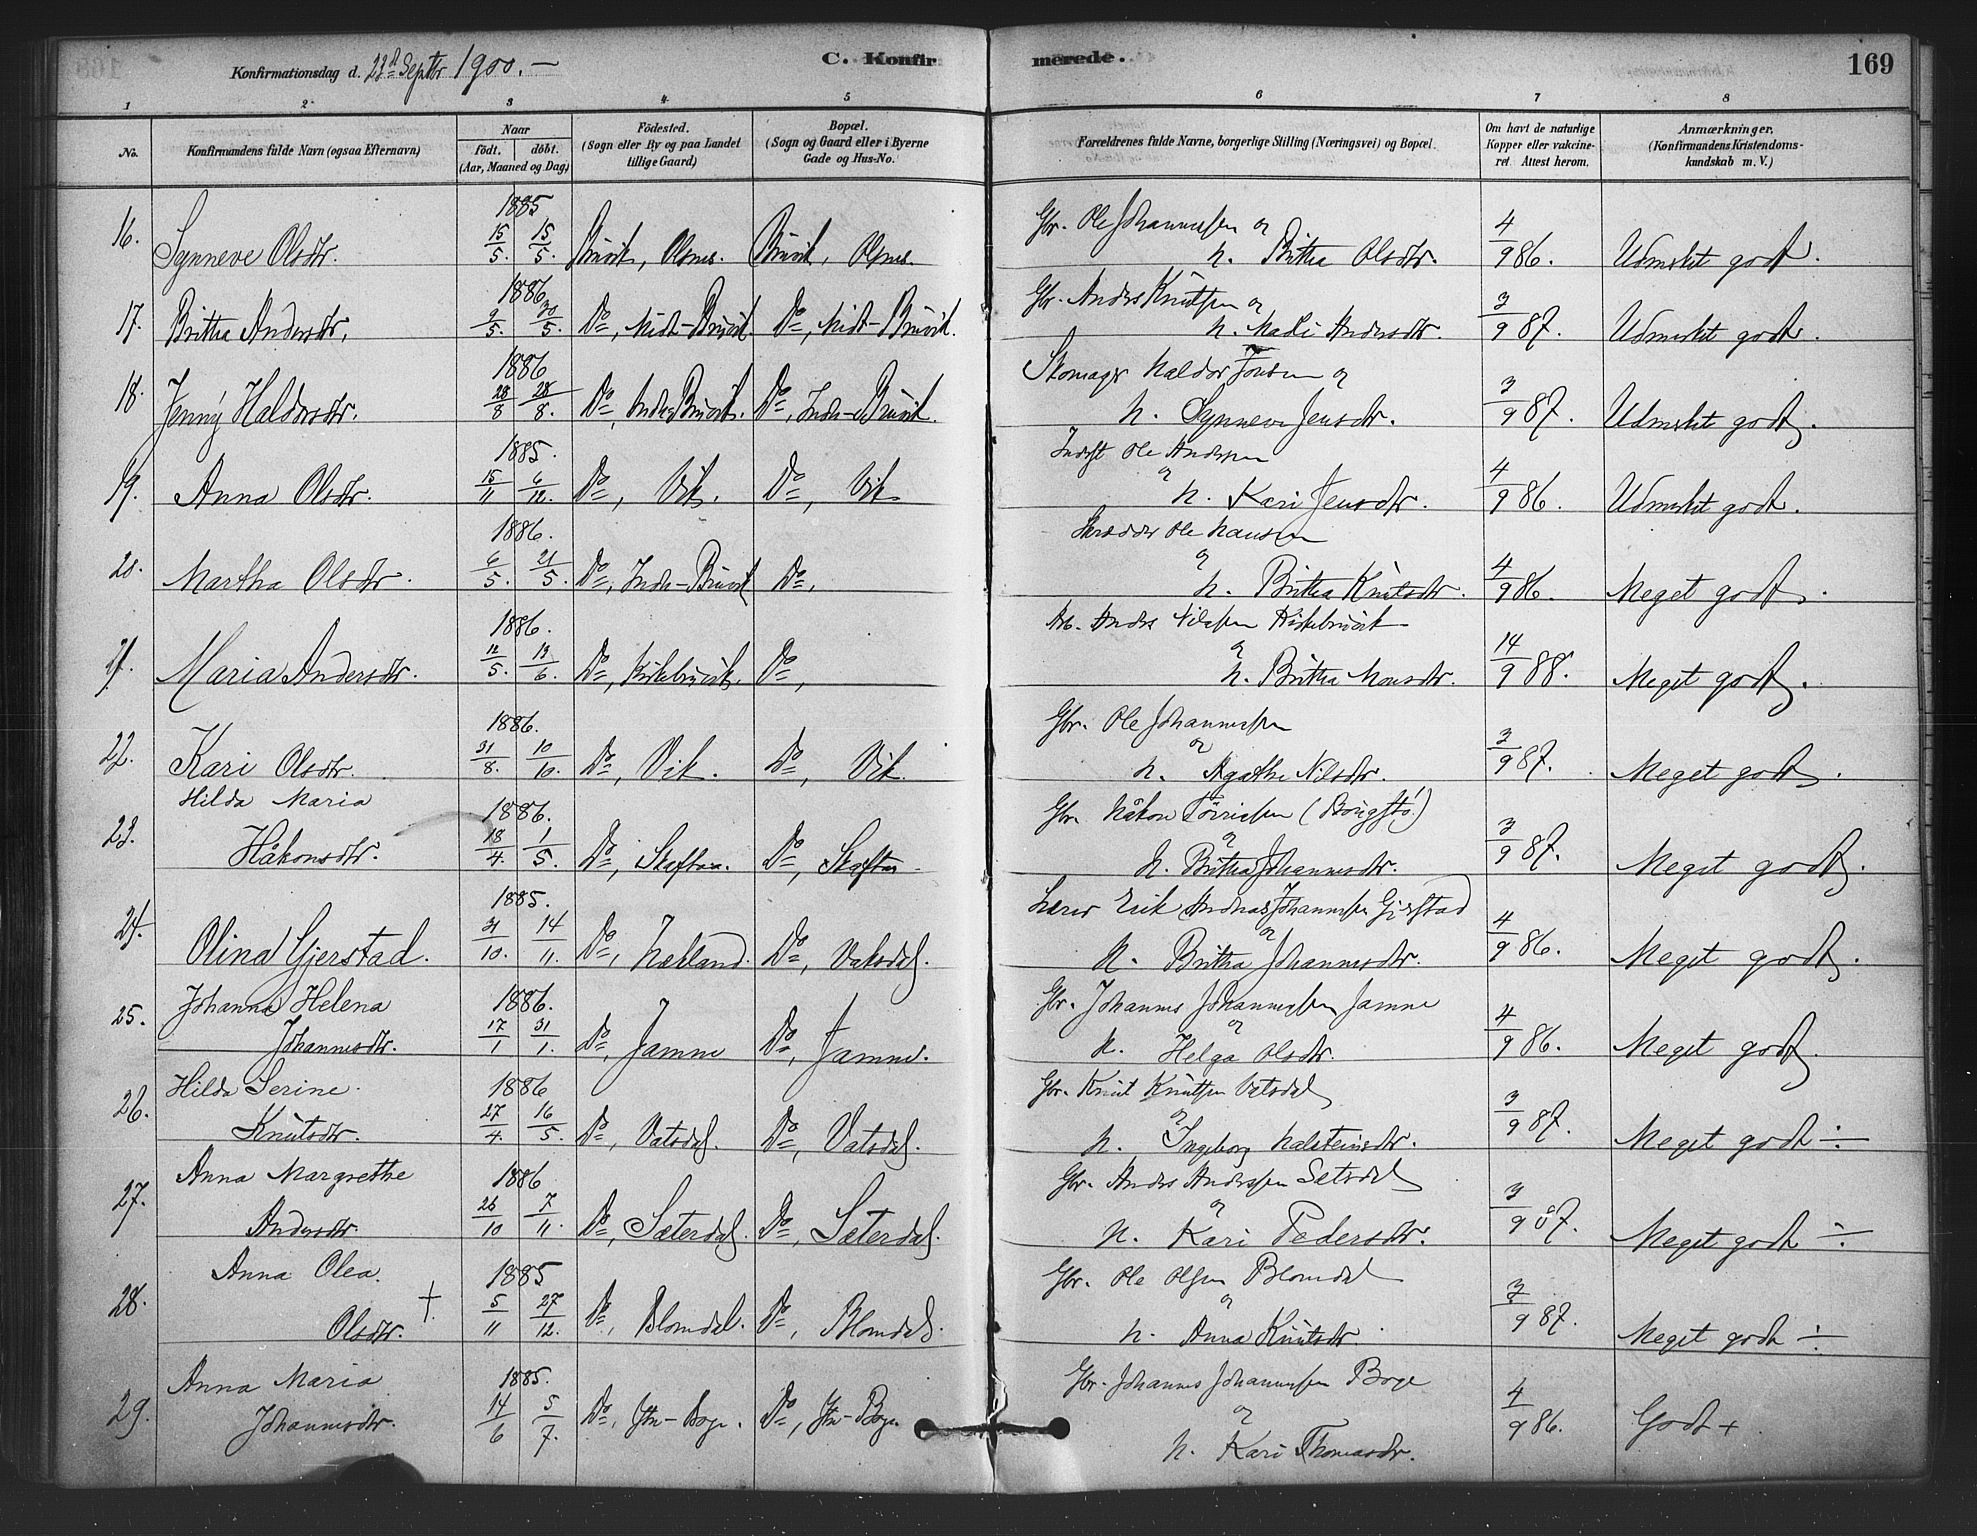 Konfirmationsdag d. 23d Septbr 1900. —
C. Konfirmerede.
169
1 2 3 4 5 6 7 8
No. Konfirmandens fulde Navn (ogsaa Efternavn) Naar födt. döbt. (Aar, Maaned og Dag) Födested. (Sogn eller By og paa Landet tillige Gaard) Bopæl. (Sogn og Gaard eller i Byerne Gade og Hus-No.) Forældrenes fulde Navne, borgerlige Stilling (Næringsvei) og Bopæl. Om havt de naturlige Kopper eller vakcineret. Attest herom. Anmærkninger, (Konfirmandens Kristendomskundskab m. V.)
1885 Gbr. Ole Johannessen og
16. Synneve Olsdtr. 15/5. 15/5. Bruvik, Olsnes. Bruvik, Olsnes. h. Brithe Olsdtr. 4/9 86. Udmerket godt.
1886 Gbr. Anders Knutsen og
17. Britha Andersdtr. 9/5. 30/5. Do, Midt-Bruvik Do, Midt-Bruvik. h. Madli Andersdtr. 3/9 87. Udmerket godt.
1886 Skomager Haldor Jonsen og
18. Jenny Haldorsdtr. 28/8 28/8. Do, Indre Bruvik. Do, Indre-Bruvik. h. Synneve Jensdtr. 3/9 87. Udmerket godt.
1885. Inderst Ole Andersen og
19. Anna Olsdtr. 15/11 6/12. Do, Vik. Do, Vik h. Kari Jensdtr. 4/9 86. Udmerket godt.
1886. Skrædder Ole Hansen og
20. Martha Olsdtr. 6/5. 21/5. Do, Indre-Bruvik Do, h. Britha Knutsdtr. 4/9 86. Meget godt.
1886. Arb. Anders Nilssen Kirkebruvik og
21. Maria Andersdtr. 12/5. 13/6. Do, Kirkebruvik. Do, h. Britha Monsdtr. 14/9 88. Meget godt.
1886. Gbr. Ole Johannessen og
22. Kari Olsdtr. 31/8. 10/10. Do, Vik. Do, Vik. h. Agathe Nilsdtr. 3/9 87. Meget godt.
Hilda Maria 1886. Gbr. Håkon Törrissen og
23. Håkonsdtr. 18/4. 1/5. Do, Skaftaa. Do, Skaftaa h. Britha Johannesdtr. 3/9 87. Meget godt.
1885. Lærer Erik Andreas Johannessen Gjerstad og
24. Olina Gjerstad. 31/10. 14/11. Do, Hætland. Do, Vaksdal. h. Britha Johannesdtr. 4/9 86. Meget godt.
Johanna Helena 1886. Gbr. Johannes Johannessen Jamne og
25. Johannesdtr. 17/1 31/1. Do, Jamne Do, Jamne. h. Helga Olsdtr. 4/9 86. Meget godt.
Hilda Serine. 1886 Gbr. Knut Knutsen Vatsdal og
26. Knutsdtr. 27/4. 16/5. Do, Vatsdal. Do, Vatsdal. h. Ingeborg Halsteinsdtr. 3/9 87. Meget godt ÷
Anna Margrethe 1886 Gbr. Anders Anderssen Setsdal og
27. Andersdtr. 26/10 7/11. Do, Sæterdal. Do, Sæterdal. h. Kari Pedersdtr. 3/9 87. Meget godt ÷
Anna Olea. 1885 Gbr. Ole Olsen Blomdal og
28. Olsdtr. † 5/11 27/12. Do, Blomdal. Do, Blomdal. h. Anna Knutsdtr. 3/9 87. Meget godt ÷
Anna Maria 1885. Gbr. Johannes Johannessen Boge og
29. Johannesdtr. 14/6 5/7. Do, Ytre-Boge. Do, Ytre-Boge h. Kari Thomasdtr. 4/9 86. Godt +